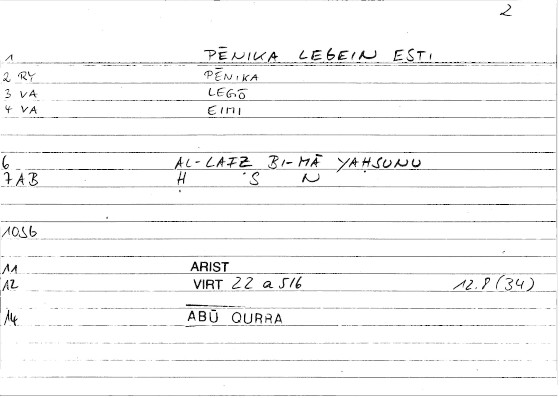 2
1 PĒNIKA LEGEIN ESTI
2 RY PĒNIKA
3 VA LEGŌ
4 VA EIMI
6 AL-LAFZ BI-MĀ YAḤSUNU
7 AB Ḥ S N
10 S6
11 ARIST
12 VIRT 22 a 516 12.8 (34)
14 ABŪ QURRA